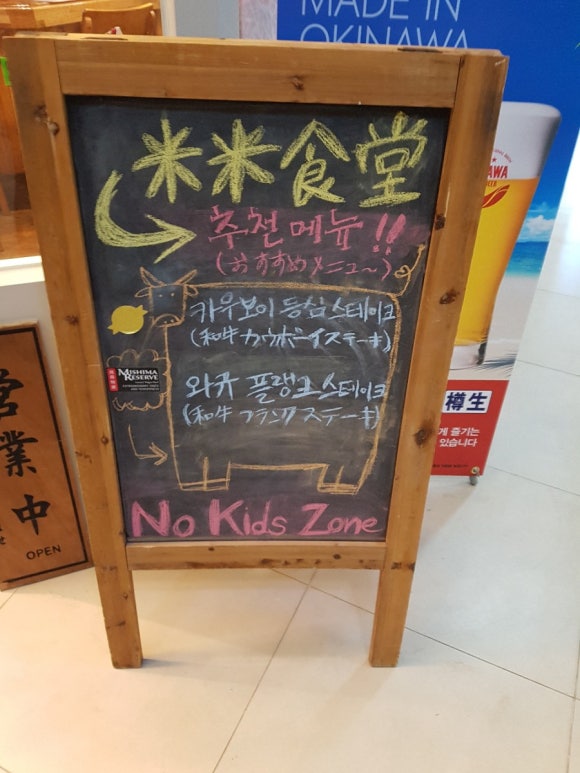 MADE IN
OKINAWA
米米食堂
추천메뉴!!
(おすすめメニュ〜)
카우보이 등심스테이크
(和牛カウボーイステーキ)
와규 플랭크 스테이크
(和牛フランクステーキ)
MISHIMA
RESERVE
No Kids Zone
営業中
OPEN
樽生
게 즐기는
있습니다